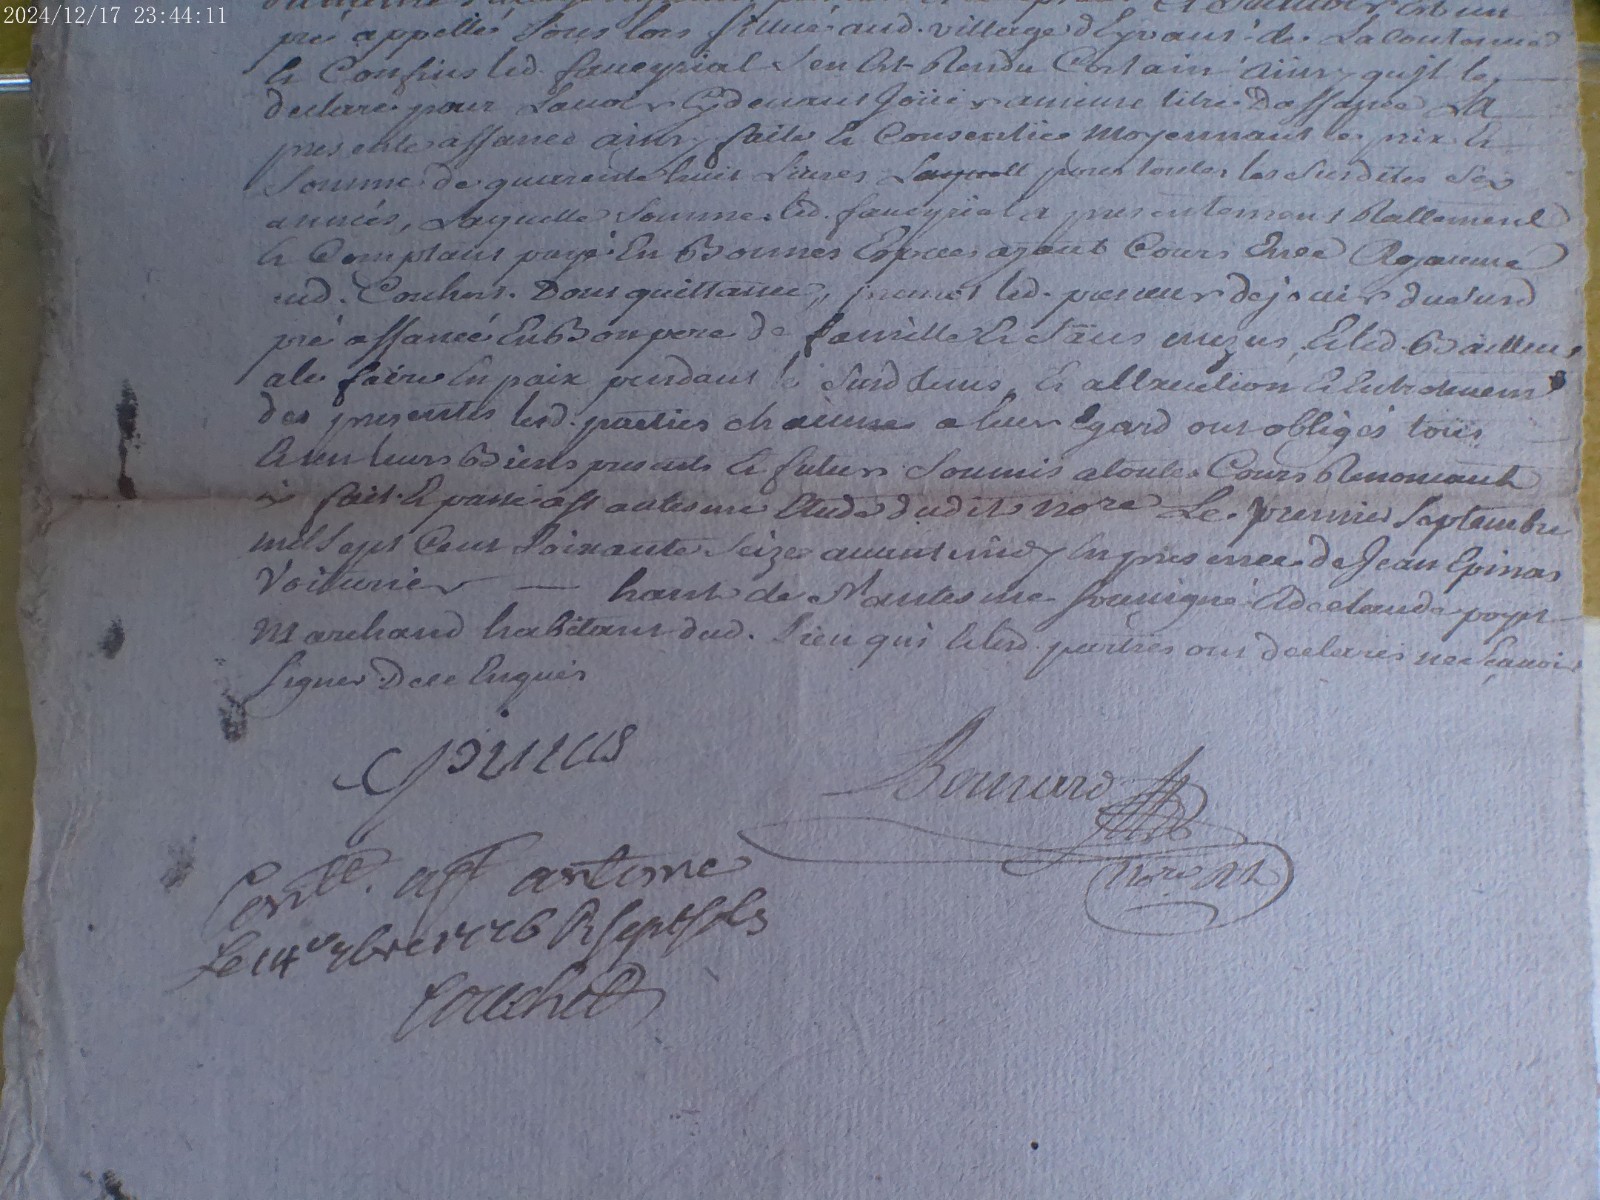 2024/12/17 23:44:11
pré appellé sous lors situé aud. village d'Eyvaus de Lacoutouned
& Confins led. faucyrial s'en est Rendu Certain ainsy qu'il le
declaré pour Lavoir Cydevant Joüir amême titre Daffance La
presente affance ainsy faite & Consentie Moyennant le prix &
Somme de quarante huit Livres pour toutes les Susdites Six
années, Laquelle Somme led. faucyrial a presentement Rallement
& Comptant payé En Bonnes Especes ayant Cours En ce Royaume
aud. Couhert. Dont quittance, promet led. preneur de jouir dudusd
pré affancé En Bon pere de famille & Sans mezus, & led. Bailleur
a le faire En paix pendant le Susd tems, & allexecution & Entretenement
des presentes lesd. parties chacune a leur Egard ont obligés tous
& un leurs Biens presents & futurs Soumis a toutes Cours Renonceant
fait & passé a St antesme Etude dudit Nore Le premier Septembre
mil Sept Cent Soixante Seize avant midy En presence de Jean Epinas
Voiturier — hant de St antesme Soussigné & de claude poyet
Marchand habitant dud. Lieu qui & lesd. parties ont declarés ne Sçavoir
Signer De ce Enquis
Epinas
Bonnard
Nore Rl
Conllé. a St antesme
Le 14e 7bre 1776 R Sept sols
Couchet